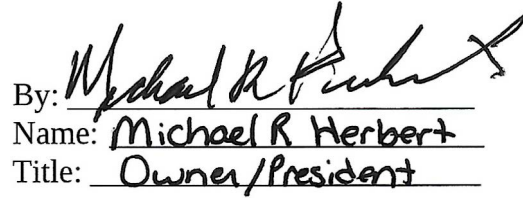 By: Michael R
Name: Michael R Herbert
Title: Owner/President